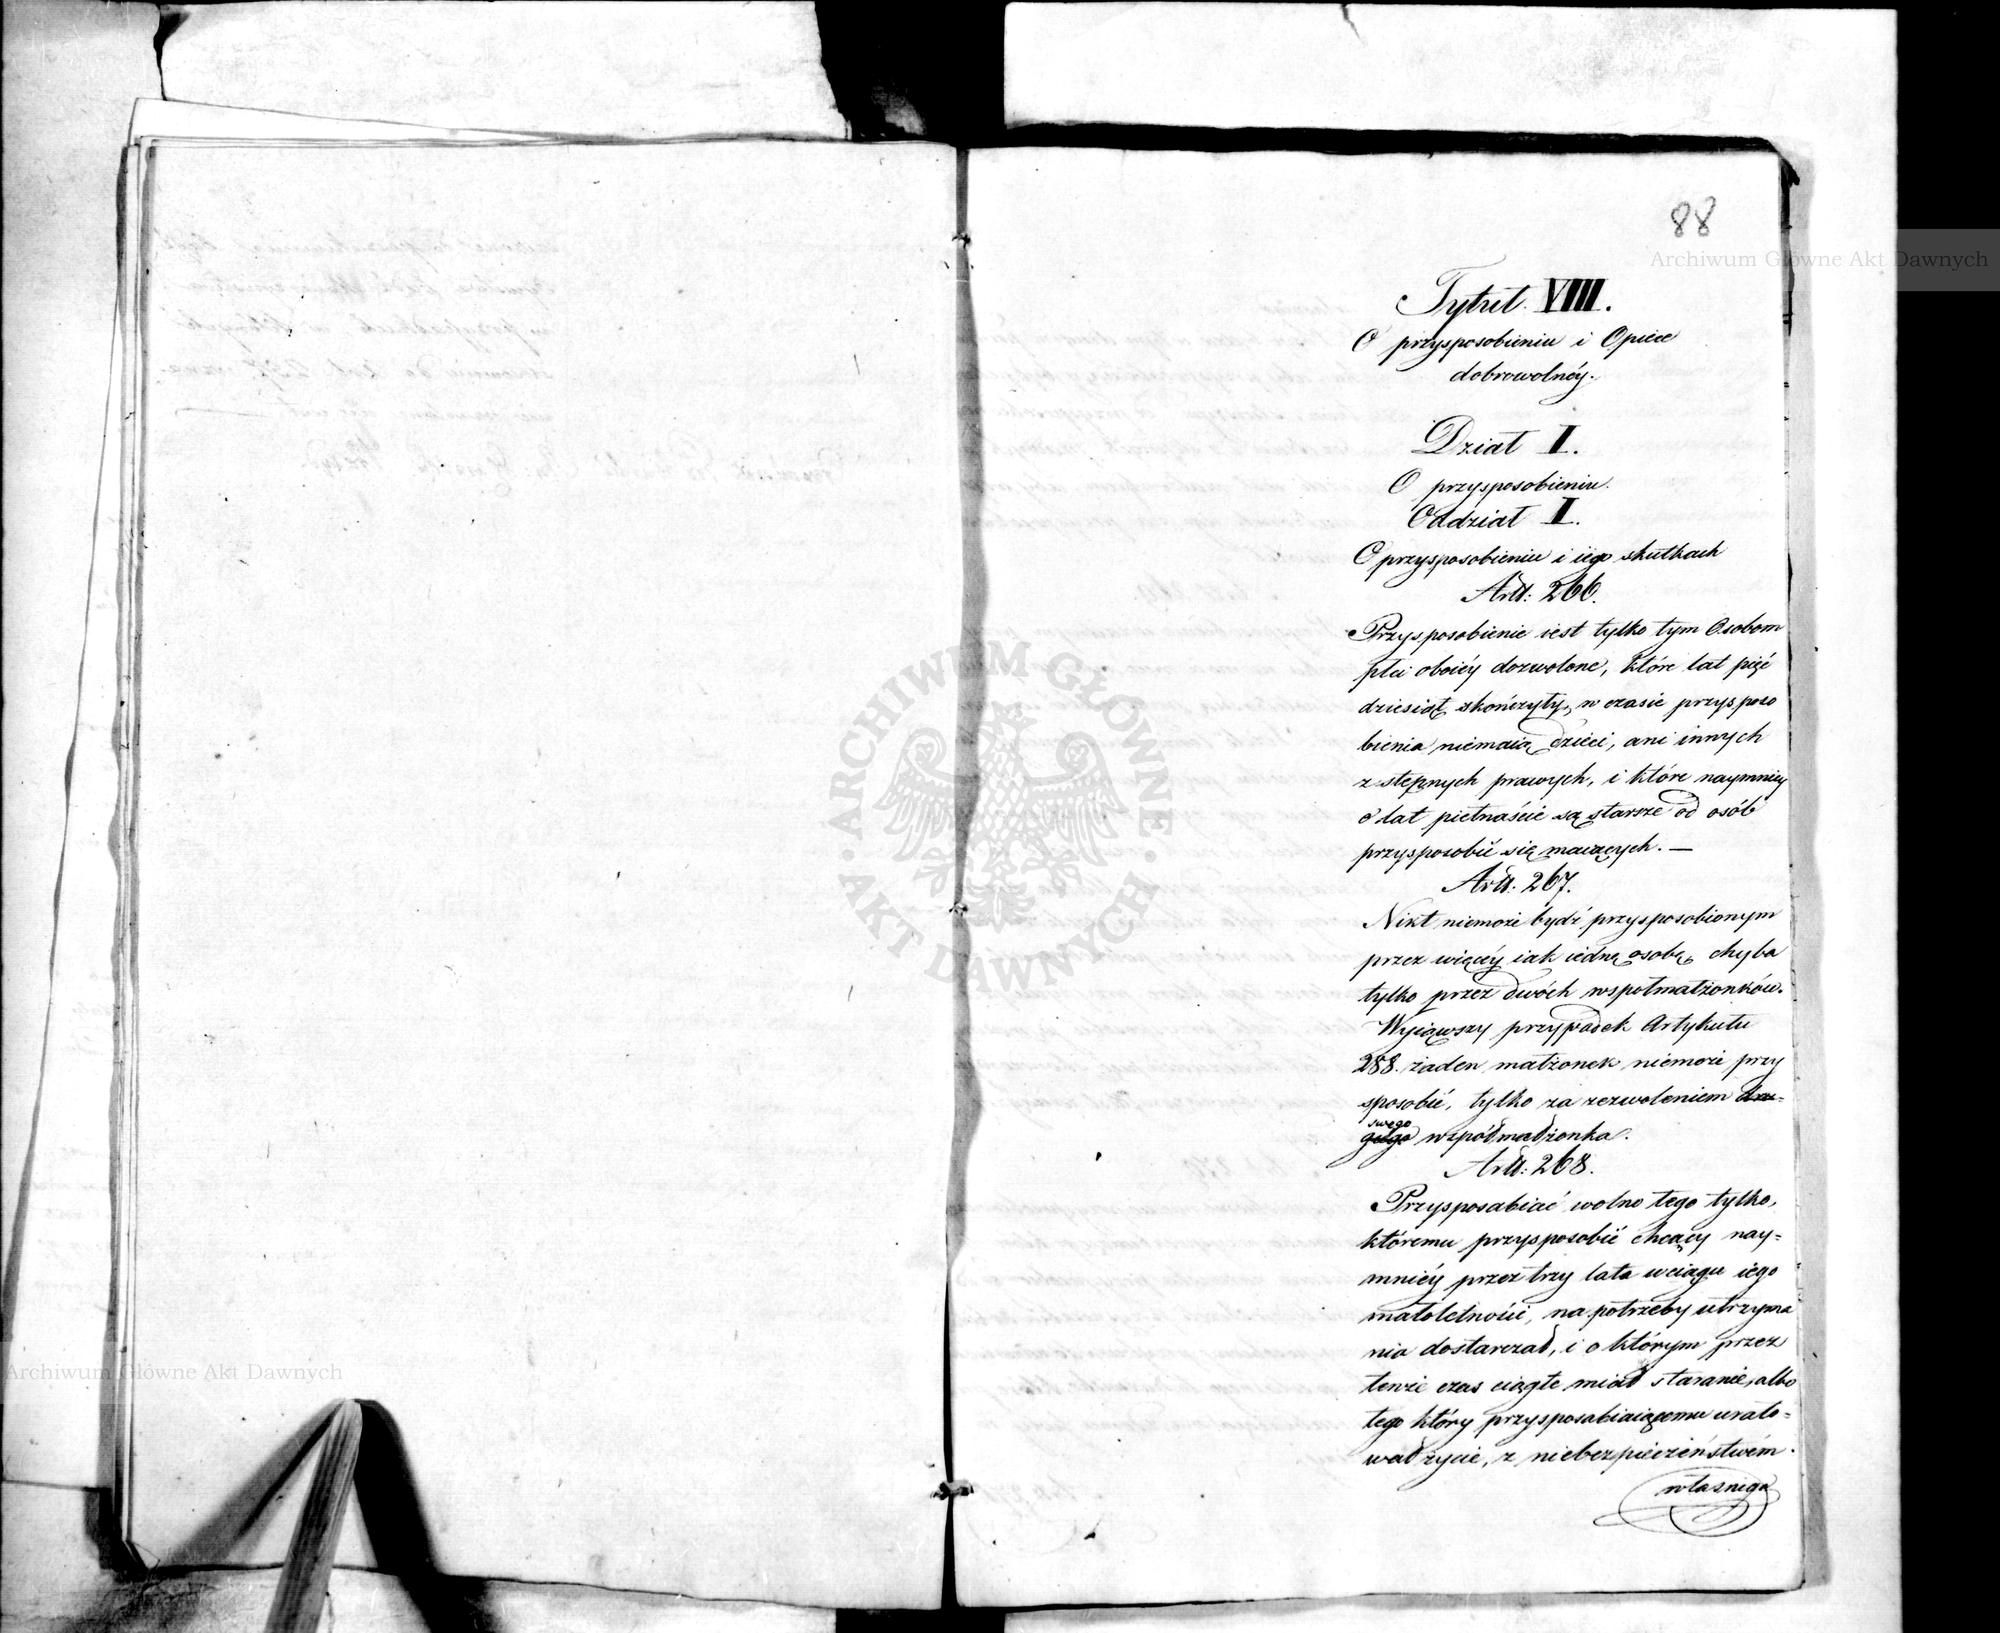 88
Archiwum Główne Akt Dawnych
Tytuł VIII.
O przysposobieniu i Opiece
dobrowolnéy.
Dział I.
O przysposobieniu.
Oddział I.
O przysposobieniu i iégo skutkach
Artt: 266.
Przysposobienie iest tylko tym Osobom
płci oboiéy dozwolone, które lat pięć
dziesiąt skończyły, w czasie przysposo
bienia niemaią dzieci, ani innych
zstępnych prawych, i które naymniéy
o lat pietnaście są starsze od osób
przysposobić się maiących. —
Artt: 267.
Nikt niemoże bydź przysposobionym
przez więcéy iak iedną osobę, chyba
tylko przez dwóch współmałżonków.
Wyiąwszy przypadek Artykułu
288. żaden małżonek niemoże przy
sposobić, tylko za zezwoleniem dru-
swego
giego współmałżonka.
Artt: 268.
Przysposabiać wolno tego tylko,
któremu przysposobić chcący nay=
mniéy przez trzy lata wciągu iego
małoletności, na potrzeby utrzyma
nia dostarczał, i o którym przez
tenże czas ciągłe miał staranie, albo
tego który przysposabiaiącemu urato=
wał życie, z niebezpieczeństwem
własnego
ARCHIWUM GŁÓWNE
AKT DAWNYCH
Archiwum Główne Akt Dawnych